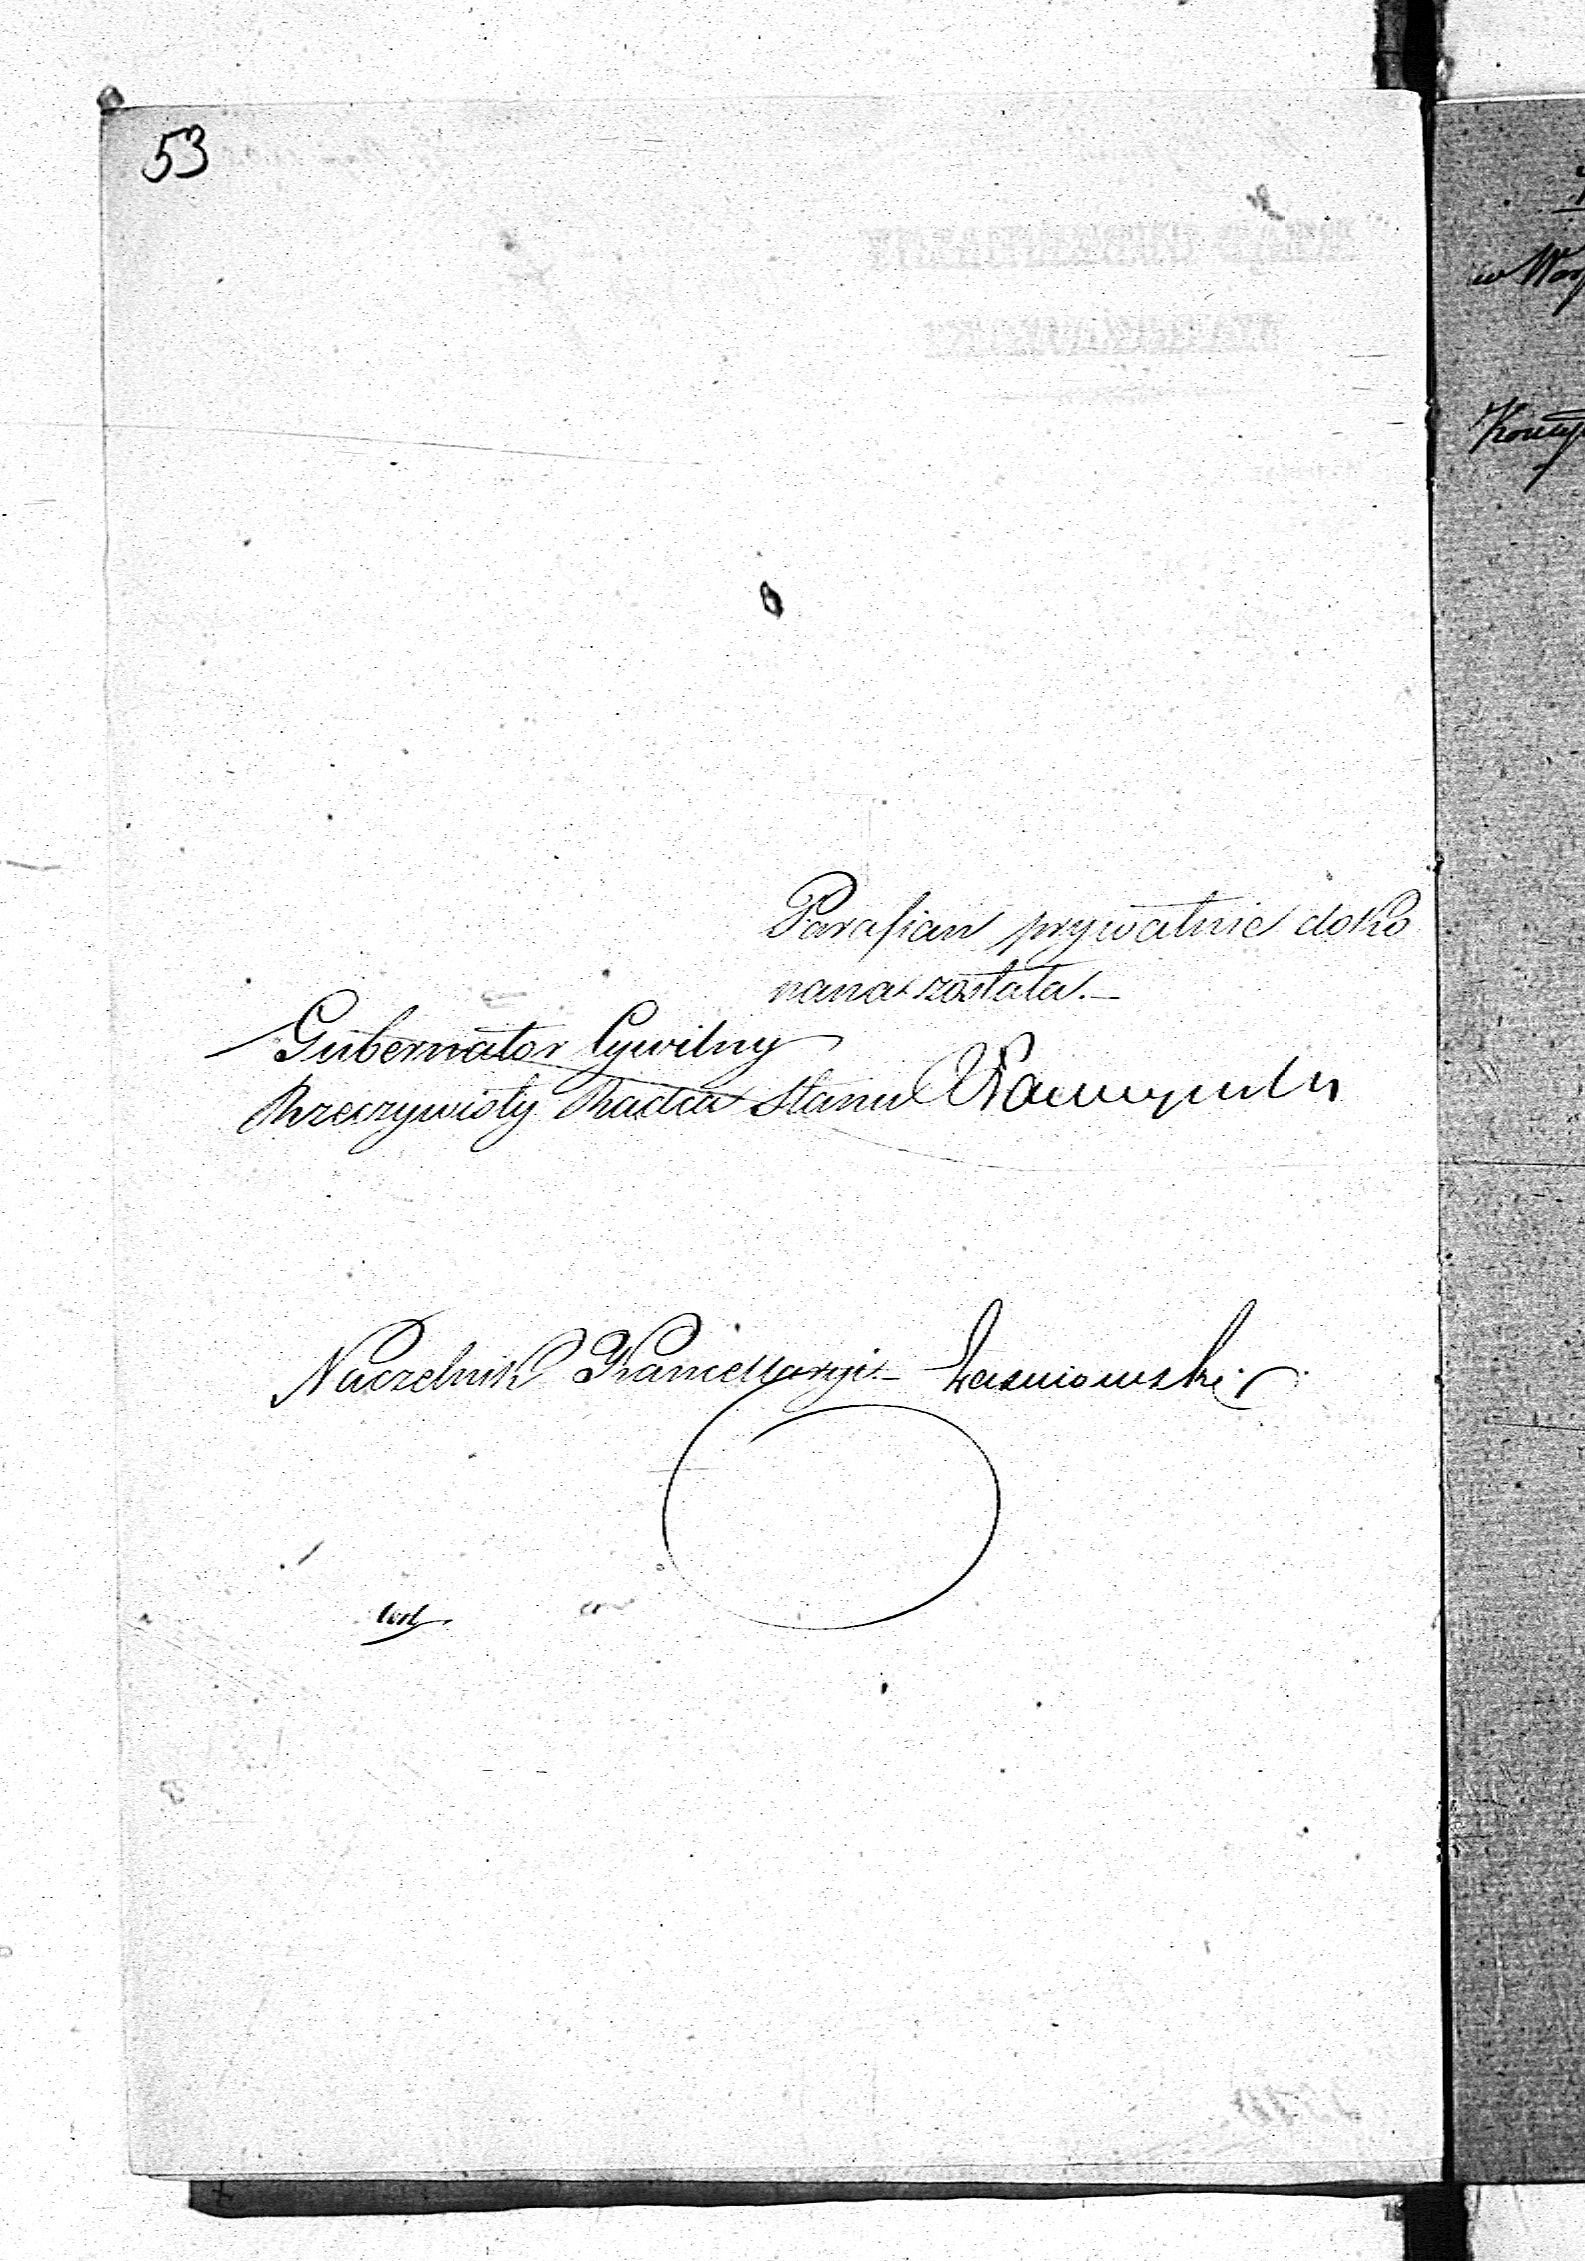 53
Parafian prywatnie doko
nana została.—
Gubernator Cywilny
Rzeczywisty Radca Stanu
Naczelnik Kancellaryi.— Łasniowski